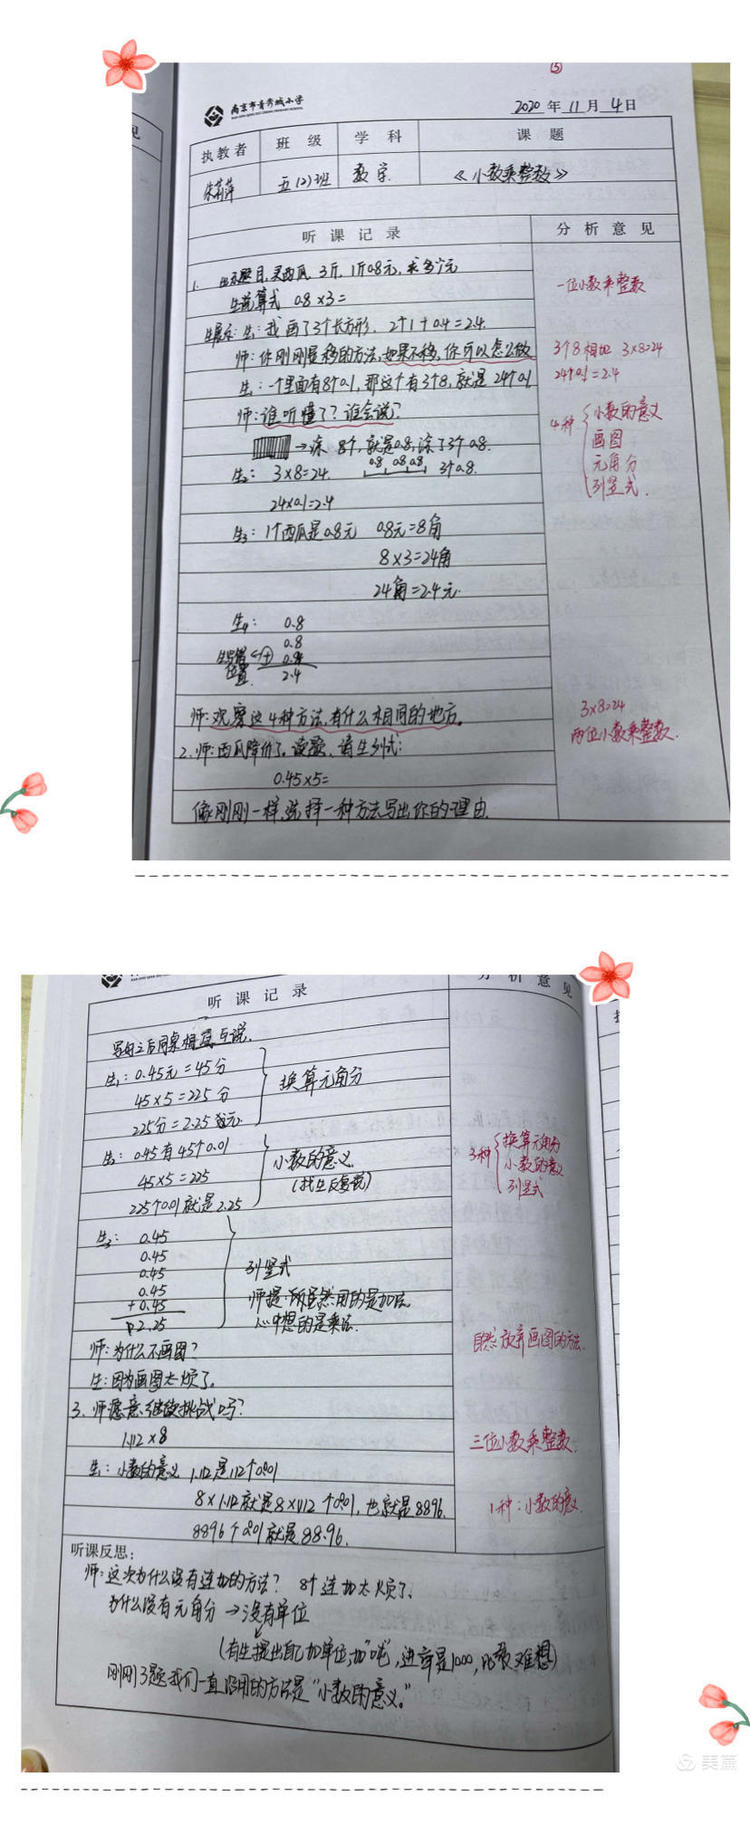 ⑤
南京市青秀城小学
2020 年 11 月 4 日
执教者 班 级 学 科 课 题
朱莉萍 五(2)班 数学 《小数乘整数》
听 课 记 录 分 析 意 见
1. 出示题目,买西瓜 3斤, 1斤0.8元, 求多少元
生说算式 0.8×3=
一位小数乘整数
生展示: 生1: 我画了3个长方形. 2+1+0.4=2.4
师: 你刚刚是移的方法,如果不移,你可以怎么做
3个8相加 3×8=24
生: 一个里面有8个0.1, 那这个有3个8, 就是24个0.1
24个0.1=2.4
师: 谁听懂了? 谁会说?
4种 小数的意义
画图
元角分
列竖式.
→涂 8个, 就是0.8, 涂了3个0.8.
生2: 3×8=24. 0.8 0.8 0.8 3个0.8.
24×0.1=2.4
生3: 1个西瓜是0.8元 0.8元=8角
8×3=24角
24角=2.4元.
生4: 0.8
0.8
+ 0.8
位置 2.4
师:观察这4种方法,有什么相同的地方。
3×8=24
两位小数乘整数.
2. 师:西瓜降价了, 读题, 请生列式:
0.45×5=
像刚刚一样,选择一种方法写出你的理由.
听 课 记 录 分 析 意 见
写好之后同桌相互说.
生1: 0.45元=45分
45×5=225分 换算元角分
225分=2.25元.
生2: 0.45有45个0.01
45×5=225 小数的意义
(找生反复说)
225个0.01就是2.25
3种 换算元角分
小数的意义
列竖式
生3: 0.45
0.45
0.45
0.45
+0.45
2.25
列竖式
师提:虽然用的是加法.
心中想的是乘法.
师:为什么不画图?
自然放弃画图的方法.
生:因为画图太烦了。
3. 师愿意继续挑战吗?
1.112×8
三位小数乘整数.
生1: 小数的意义
1种:小数的意义
听课反思:
师:这次为什么没有连加的方法? 8个连加太烦了.
为什么没有元角分→没有单位
(有生提出自己加单位,加“吨”, 进率是1000, 比较难想)
刚刚3题我们一直沿用的方法是“小数的意义。”
美篇